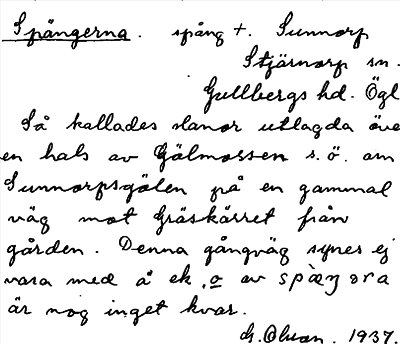 Spångerna. spång t. Sunnorp
Stjärnorp sn.
Gullbergs hd. Ögl
Så kallades slanor utlagda öve
en hals av Gölmossen s. ö. om
Sunnorpsgölen på en gammal
väg mot Gräskärret från
gården. Denna gångväg synes ej
vara med å ek, o av spàŋəra
är nog inget kvar.
G. Olson. 1937.